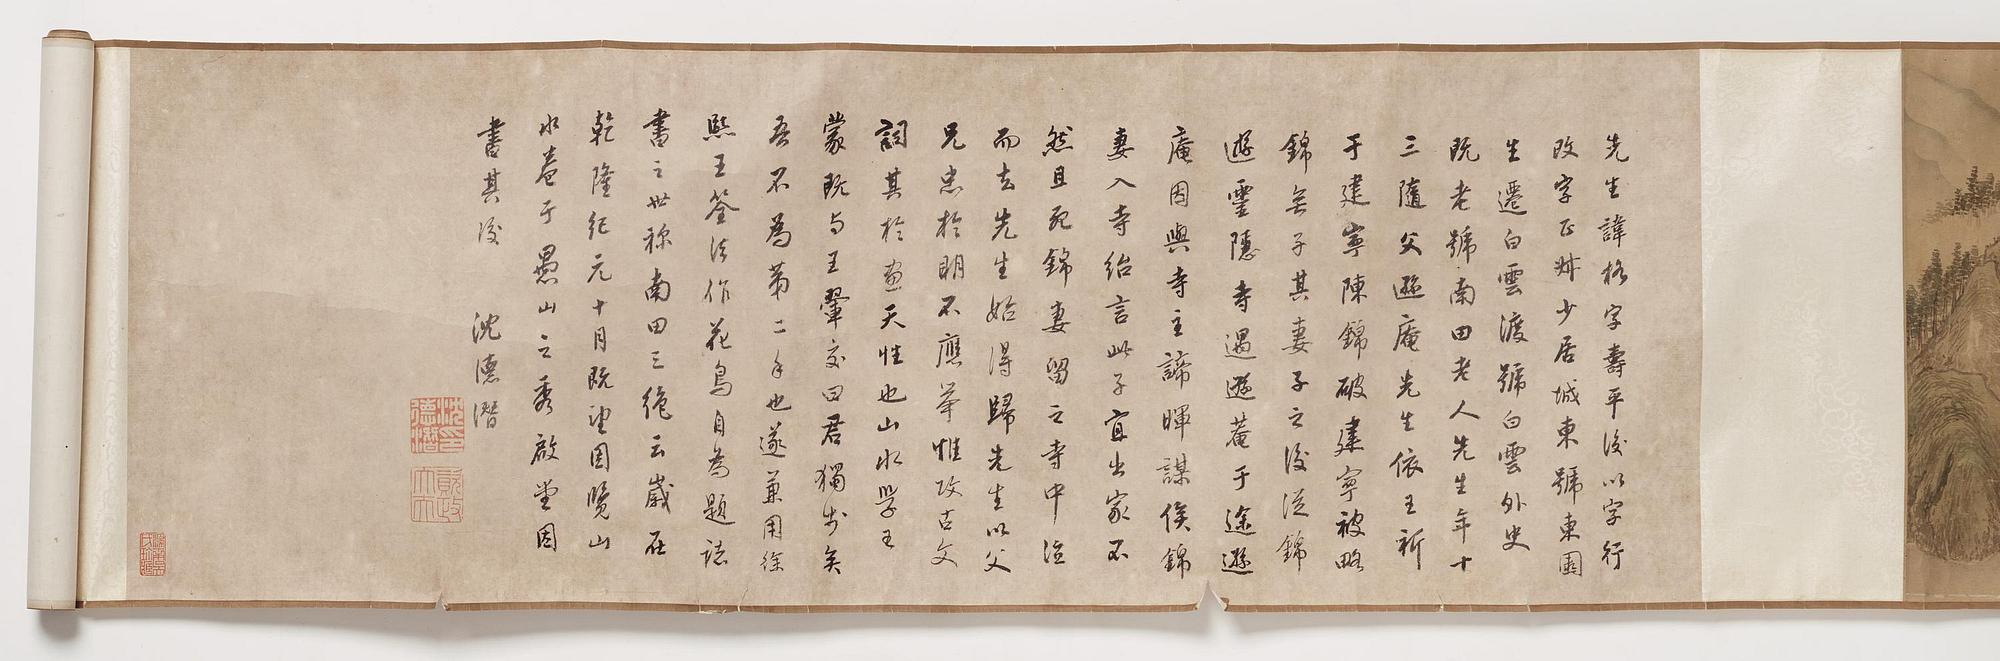 先生諱格字壽平後以字行
改字正叔少居城東號東園
生遷白雲渡號白雲外史
既老號南田老人先生年十
三隨父遜庵先生依王祈
于建寧陳錦破建寧被略
錦無子其妻子之後從錦
遊靈隱寺遇遜菴于途遜
庵因與寺主諦暉謀俟錦
妻入寺紿言此子宜出家不
然且死錦妻留之寺中泣
而去先生始得歸先生以父
兄忠於明不應舉惟攻古文
詞其於畫天性也山水學王
蒙既与王翬交曰君獨步矣
吾不為第二手也遂兼用徐
熙王筌法作花鳥自為題誌
書之世称南田三絶云歲在
乾隆紀元十月既望因覽山
水卷于愚山之秀啟堂因
書其後 沈德潛
沈德潛印